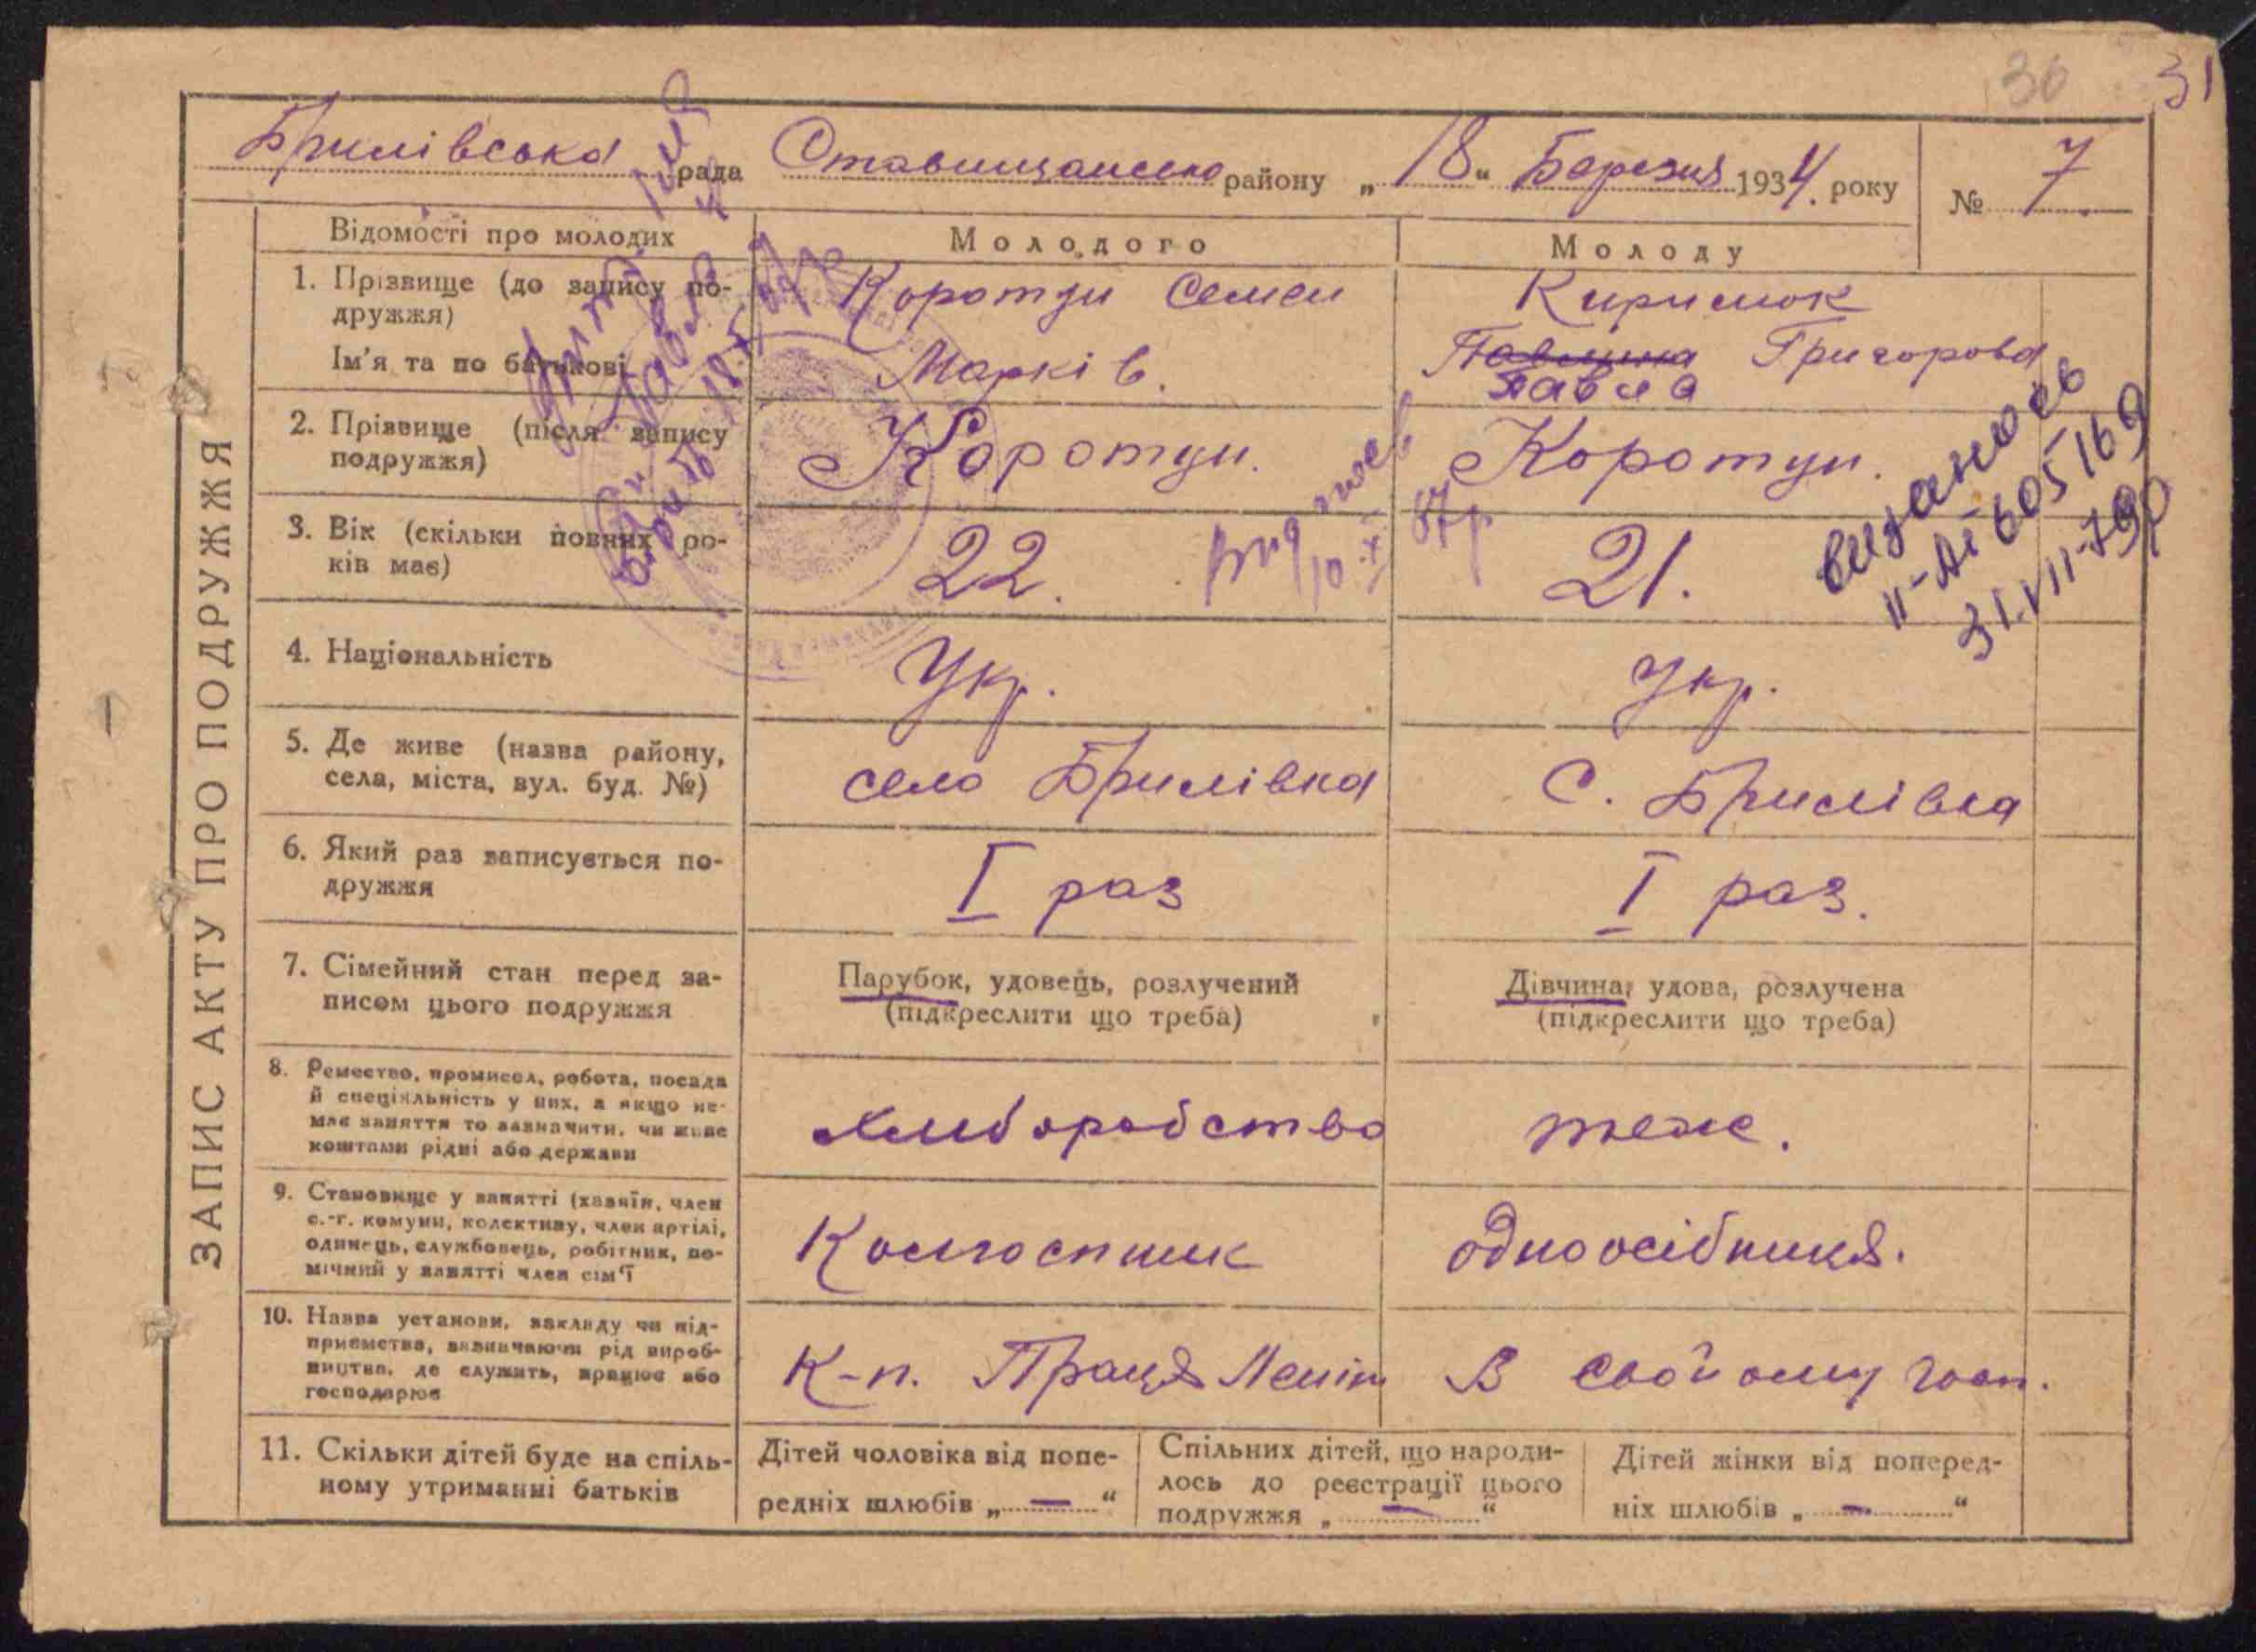 30 31
Брилівська рада Ставищансько району „18“ Березня 1934. року № 7.
ЗАПИС АКТУ ПРО ПОДРУЖЖЯ
Відомості про молодих Молодого Молоду
1. Прізвище (до запису по- Коротун Семен Кирилюк
дружжя)
Ім'я та по батькові Марків. Павлина Григорова
Павла
2. Прізвище (після запису Коротун. Коротун.
подружжя)
3. Вік (скільки повних ро- 22. 21.
ків має)
видано
10.XI 87р
видано
II-АІ 605169
31.VII-79р
18.
4. Національність Укр. Укр.
5. Де живе (назва району, село Брилівка С. Брилівка
села, міста, вул. буд. №)
6. Який раз записується по- I раз I раз.
дружжя
7. Сімейний стан перед за- Парубок, удовець, розлучений Дівчина, удова, розлучена
писом цього подружжя (підкреслити що треба) (підкреслити що треба)
8. Ремество, промисел, робота, посада
й спеціяльність у них, а якщо не-
має заняття то зазначити, чи живе хліборобство теж.
коштами рідні або держави
9. Становище у занятті (хазяїн, член
с.-г. комуни, колективу, член артілі,
одинець, службовець, робітник, по- Колгоспник одноосібниця.
мічний у занятті член сім'ї
10. Назва установи, закладу чи під-
приємства, зазначаючи рід вироб-
ництва, де служить, працює або К-п. Праця Леніна В свойому госп.
господарює
11. Скільки дітей буде на спіль-
ному утриманні батьків
Дітей чоловіка від попе-
редніх шлюбів „—“
Спільних дітей, що народи-
лось до реєстрації цього
подружжя „—“
Дітей жінки від поперед-
ніх шлюбів „—“